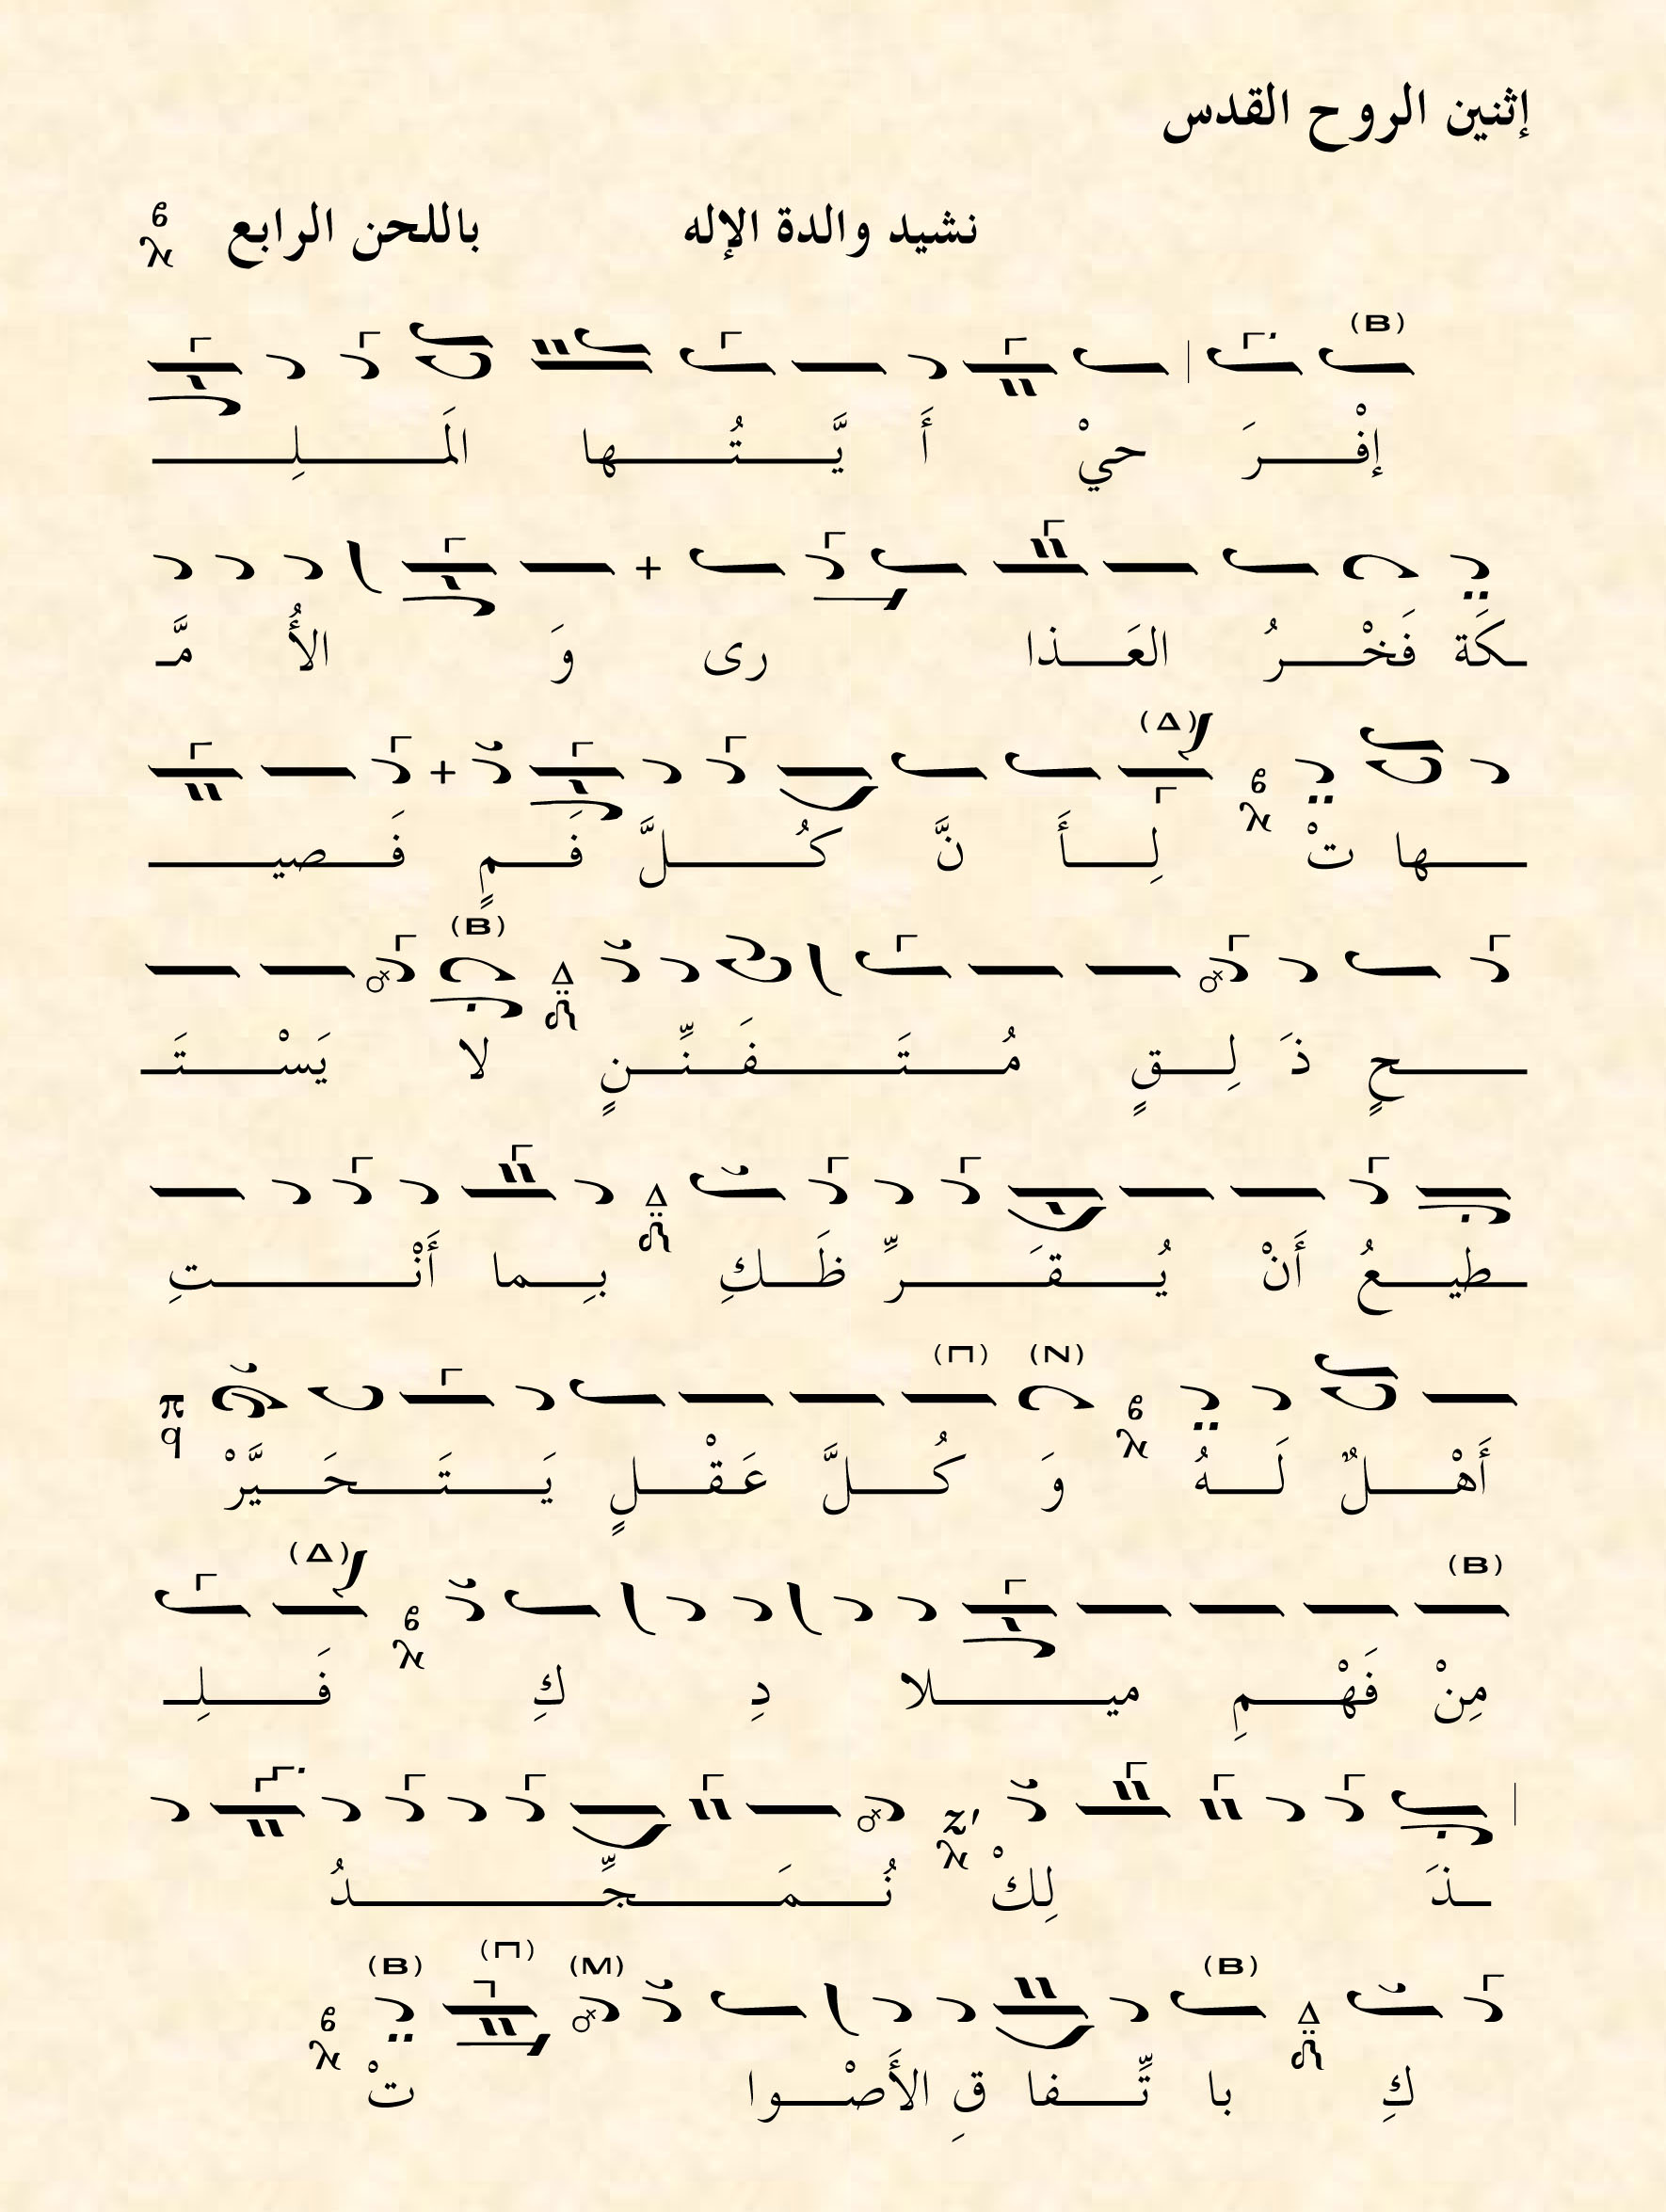 إثنين الروح القدس
نشيد والدة الإله باللحن الرابع
(B)
إفْـــرَ حيْ أَ يَّـــتُـــها المَـــلِـــ
ـكَة فَخْـــرُ العَـــذا رى وَ الأُ مَّـ
(Δ)
ـــها تْ لِـــأَ نَّ كُـــلَّ فَـــمٍ فَـــصيـــ
(B)
ـــحٍ ذَ لِـــقٍ مُـــتَـــفَـــنِّـــنٍ لا يَسْـــتَـ
Δ
ـطيـــعُ أَنْ يُـــقَـــرِّ ظَـــكِ بِـــما أَنْـــتِ
Δ
(Π) (N)
أَهْـــلٌ لَـــهُ وَ كُـــلَّ عَـقْـــلٍ يَـــتَـــحَـــيَّرْ
π q
(B) (Δ)
مِنْ فَهْـــمِ ميـــلا دِ كِ فَـــلِـ
ـذَ لِكْ نُـــمَـــجِّـــدُ
z'
(B) (M) (Π) (B)
كِ با تِّـــفا قِ الأَصْـــوا تْ
Δ